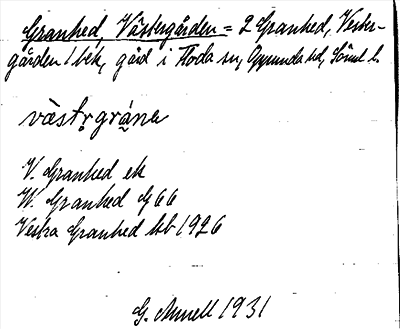 Granhed, Västergården = 2 Granhed, Vester-
gården 1 bek, gård i Floda sn, Oppunda hd, Söml l.
västrgrána
V. Granhed ek
W. Granhed G 66
Vestra Granhed hb 1926
G. Annell 1931